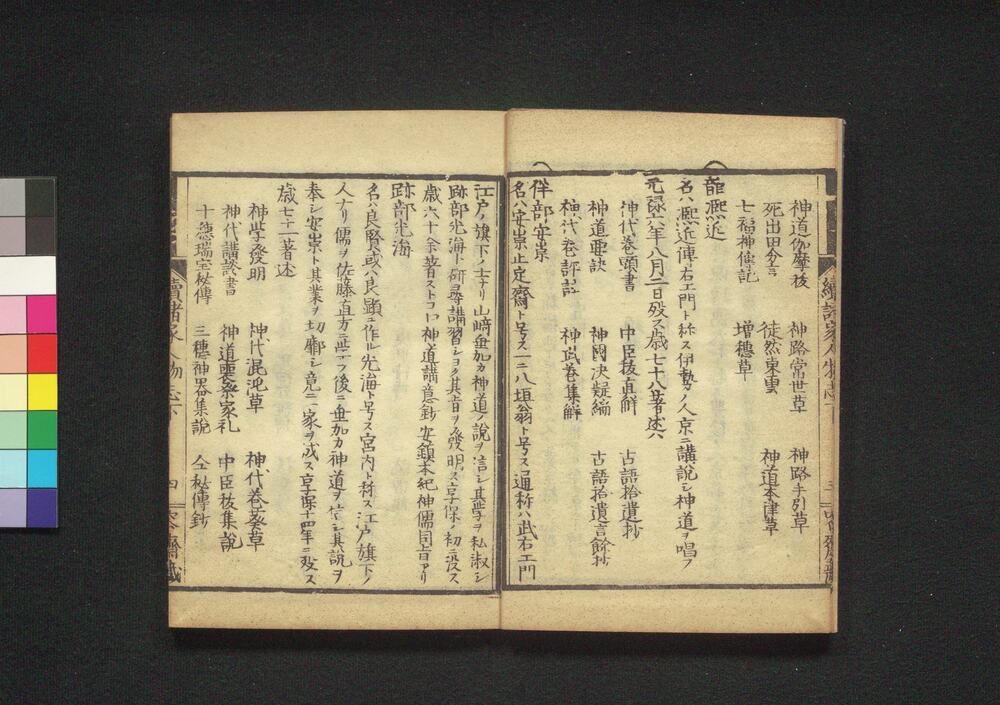 神道伽摩抜　神路常世草　神路手引草
死出田分言　徒然東雲　神道本津草
七福神傳記　増穗草
龍凞近
名ハ凞近傳右エ門ト称ス伊勢ノ人京ニ講説シ神道ヲ唱フ
元禄六年八月二日歿ス歳七十八著述ハ
神代巻頭書　中臣抜直解　古語拾遺抄
神道要訣　神國决疑編　古語拾遺言餘抄
神代巻評註　神武巻集解
伴部安崇
名ハ安崇止定齋ト号ス一ニ八垣翁ト号ス通称ハ武右エ門
江戸ノ旗下ノ士ナリ山﨑垂加カ神道ノ說ヲ信シ其学ヲ私淑シ
跡部光海ト研尋講習シヨク其旨ヲ發明ス享保ノ初ニ沒ス
歳六十余著ストコロ神道講意鈔安鎮本紀神儒同旨アリ
跡部光海
名ハ良賢或ハ良顕ニ作ル光海ト号ス宮内ト称ス江戸旗下ノ
人ナリ儒ヲ佐藤直方ニ学フ後ニ垂加カ神道ヲ信シ其說ヲ
奉シ安崇ト其業ヲ切廓シ竟ニ一家ヲ成ス享保十四年ニ歿ス
歳七十一著述
神学發明　神代混沌草　神代巻蒙草
神代講談書　神道喪祭家礼　中臣抜集說
十德瑞宝秘傳　三穗神器集說　仝秘傳鈔
續諸家人物志下
四
續諸家人物志下
三